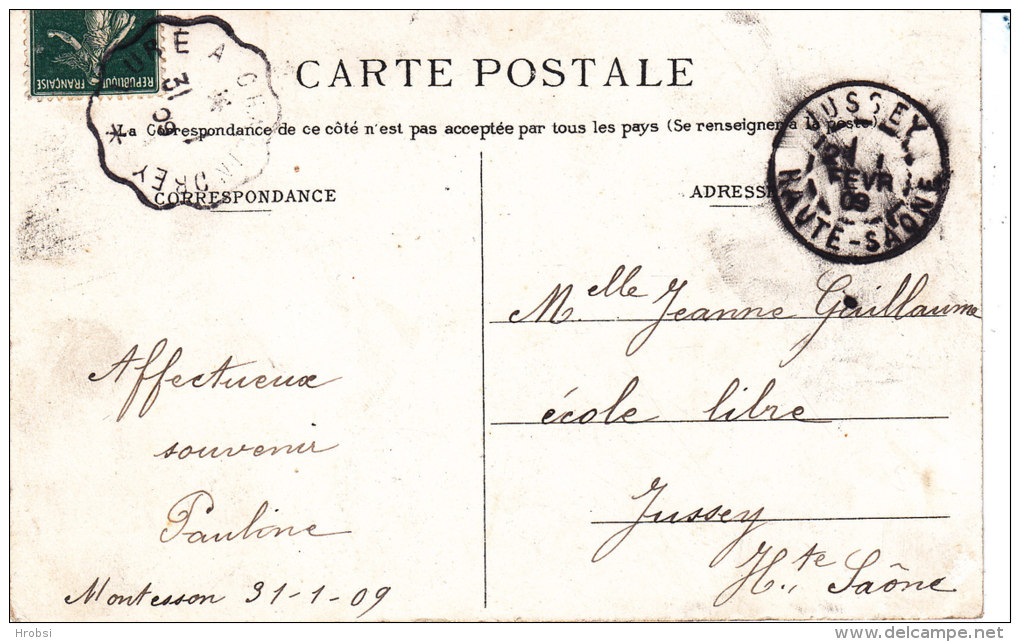 RÉPUBLIQUE FRANÇAISE
URE A
31
09
DREY
CARTE POSTALE
La Correspondance de ce côté n'est pas acceptée par tous les pays (Se renseigner à la poste)
CORRESPONDANCE
ADRESSE
JUSSEY
FEVR
09
HAUTE-SAÔNE
Melle Jeanne Guillaume
école libre
Jussey
Hte Saône
Affectueux
souvenir
Pauline
Montesson 31-1-09
Hrobsi
delcampe.net